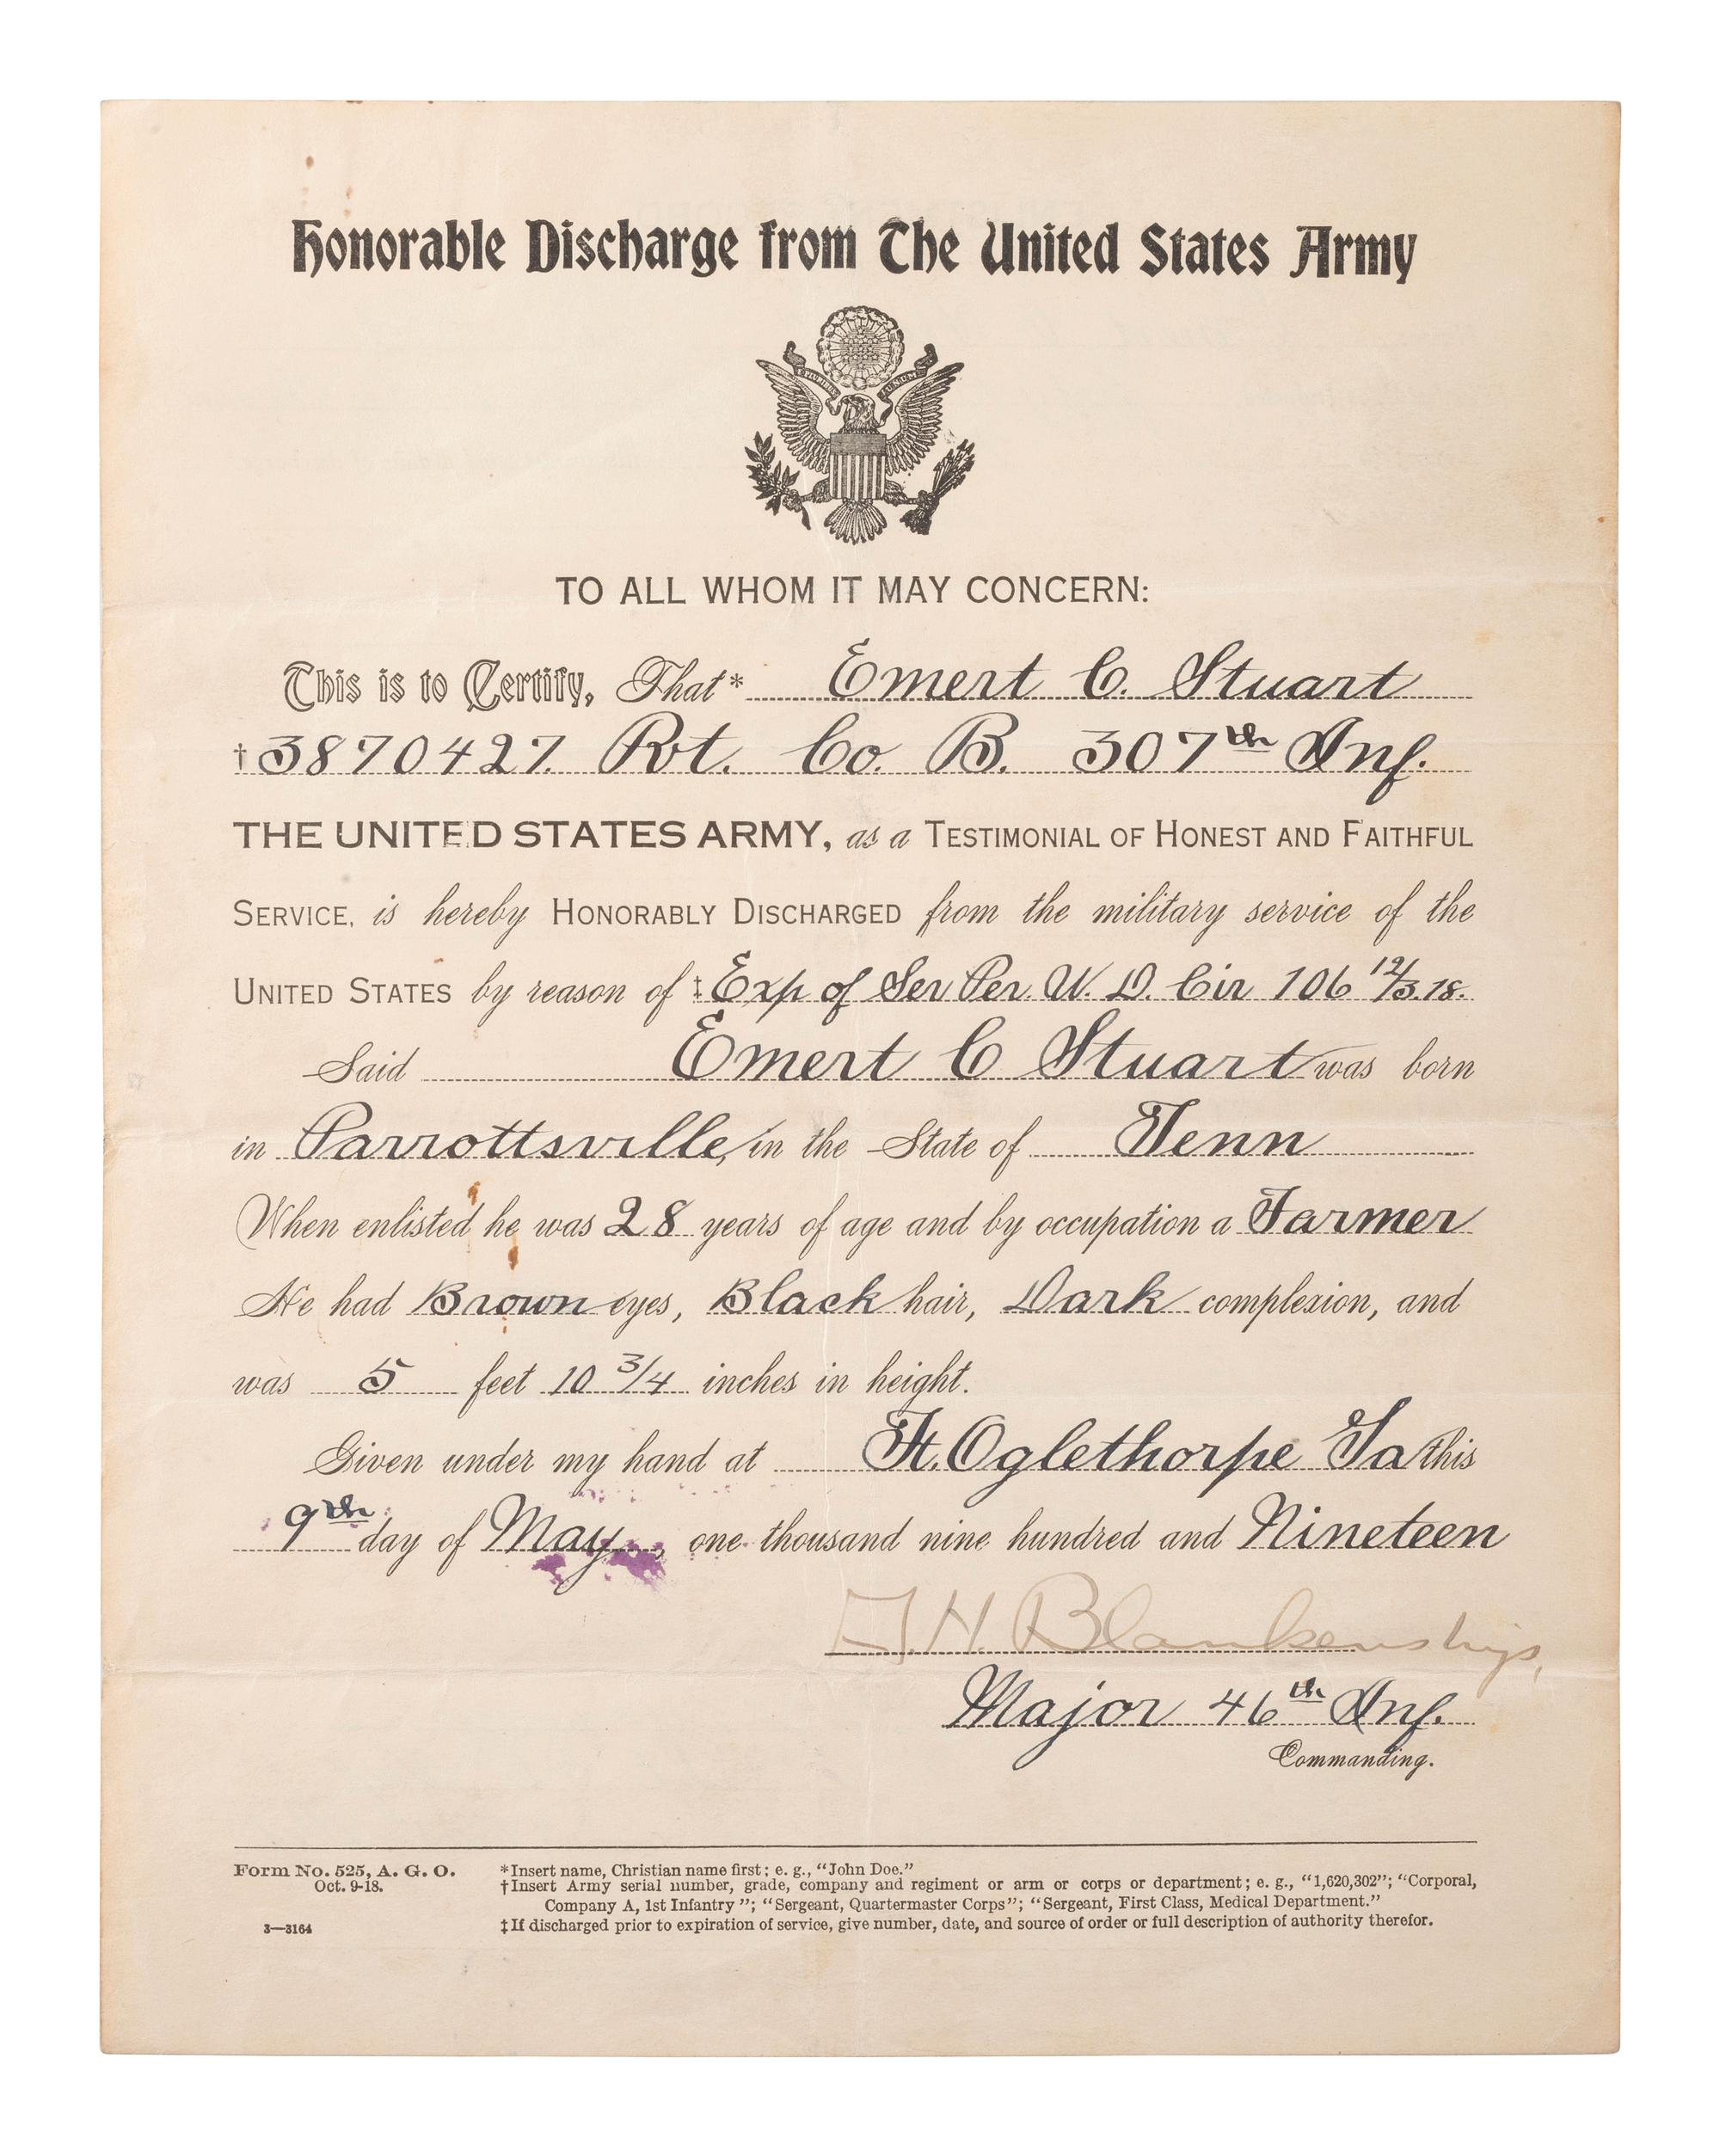 Honorable Discharge from The United States Army
TO ALL WHOM IT MAY CONCERN:
This is to Certify, That* Emert C. Stuart
†3870427. Pvt. Co. B. 307th Inf.
THE UNITED STATES ARMY, as a TESTIMONIAL OF HONEST AND FAITHFUL
SERVICE, is hereby HONORABLY DISCHARGED from the military service of the
UNITED STATES by reason of ‡Exp of Ser Per. W. D. Cir 106 12/3.18.
Said Emert C Stuart was born
in Parrottsville, in the State of Tenn
When enlisted he was 28 years of age and by occupation a Farmer
He had Brown eyes, Black hair, Dark complexion, and
was 5 feet 10 3/4 inches in height.
Given under my hand at Ft. Oglethorpe Ga this
9th day of May, one thousand nine hundred and Nineteen
H. Blankenship,
Major 46th Inf.
Commanding.
Form No. 525, A. G. O.
Oct. 9-18.
3—3164
*Insert name, Christian name first; e. g., “John Doe.”
†Insert Army serial number, grade, company and regiment or arm or corps or department; e. g., “1,620,302”; “Corporal,
Company A, 1st Infantry”; “Sergeant, Quartermaster Corps”; “Sergeant, First Class, Medical Department.”
‡If discharged prior to expiration of service, give number, date, and source of order or full description of authority therefor.